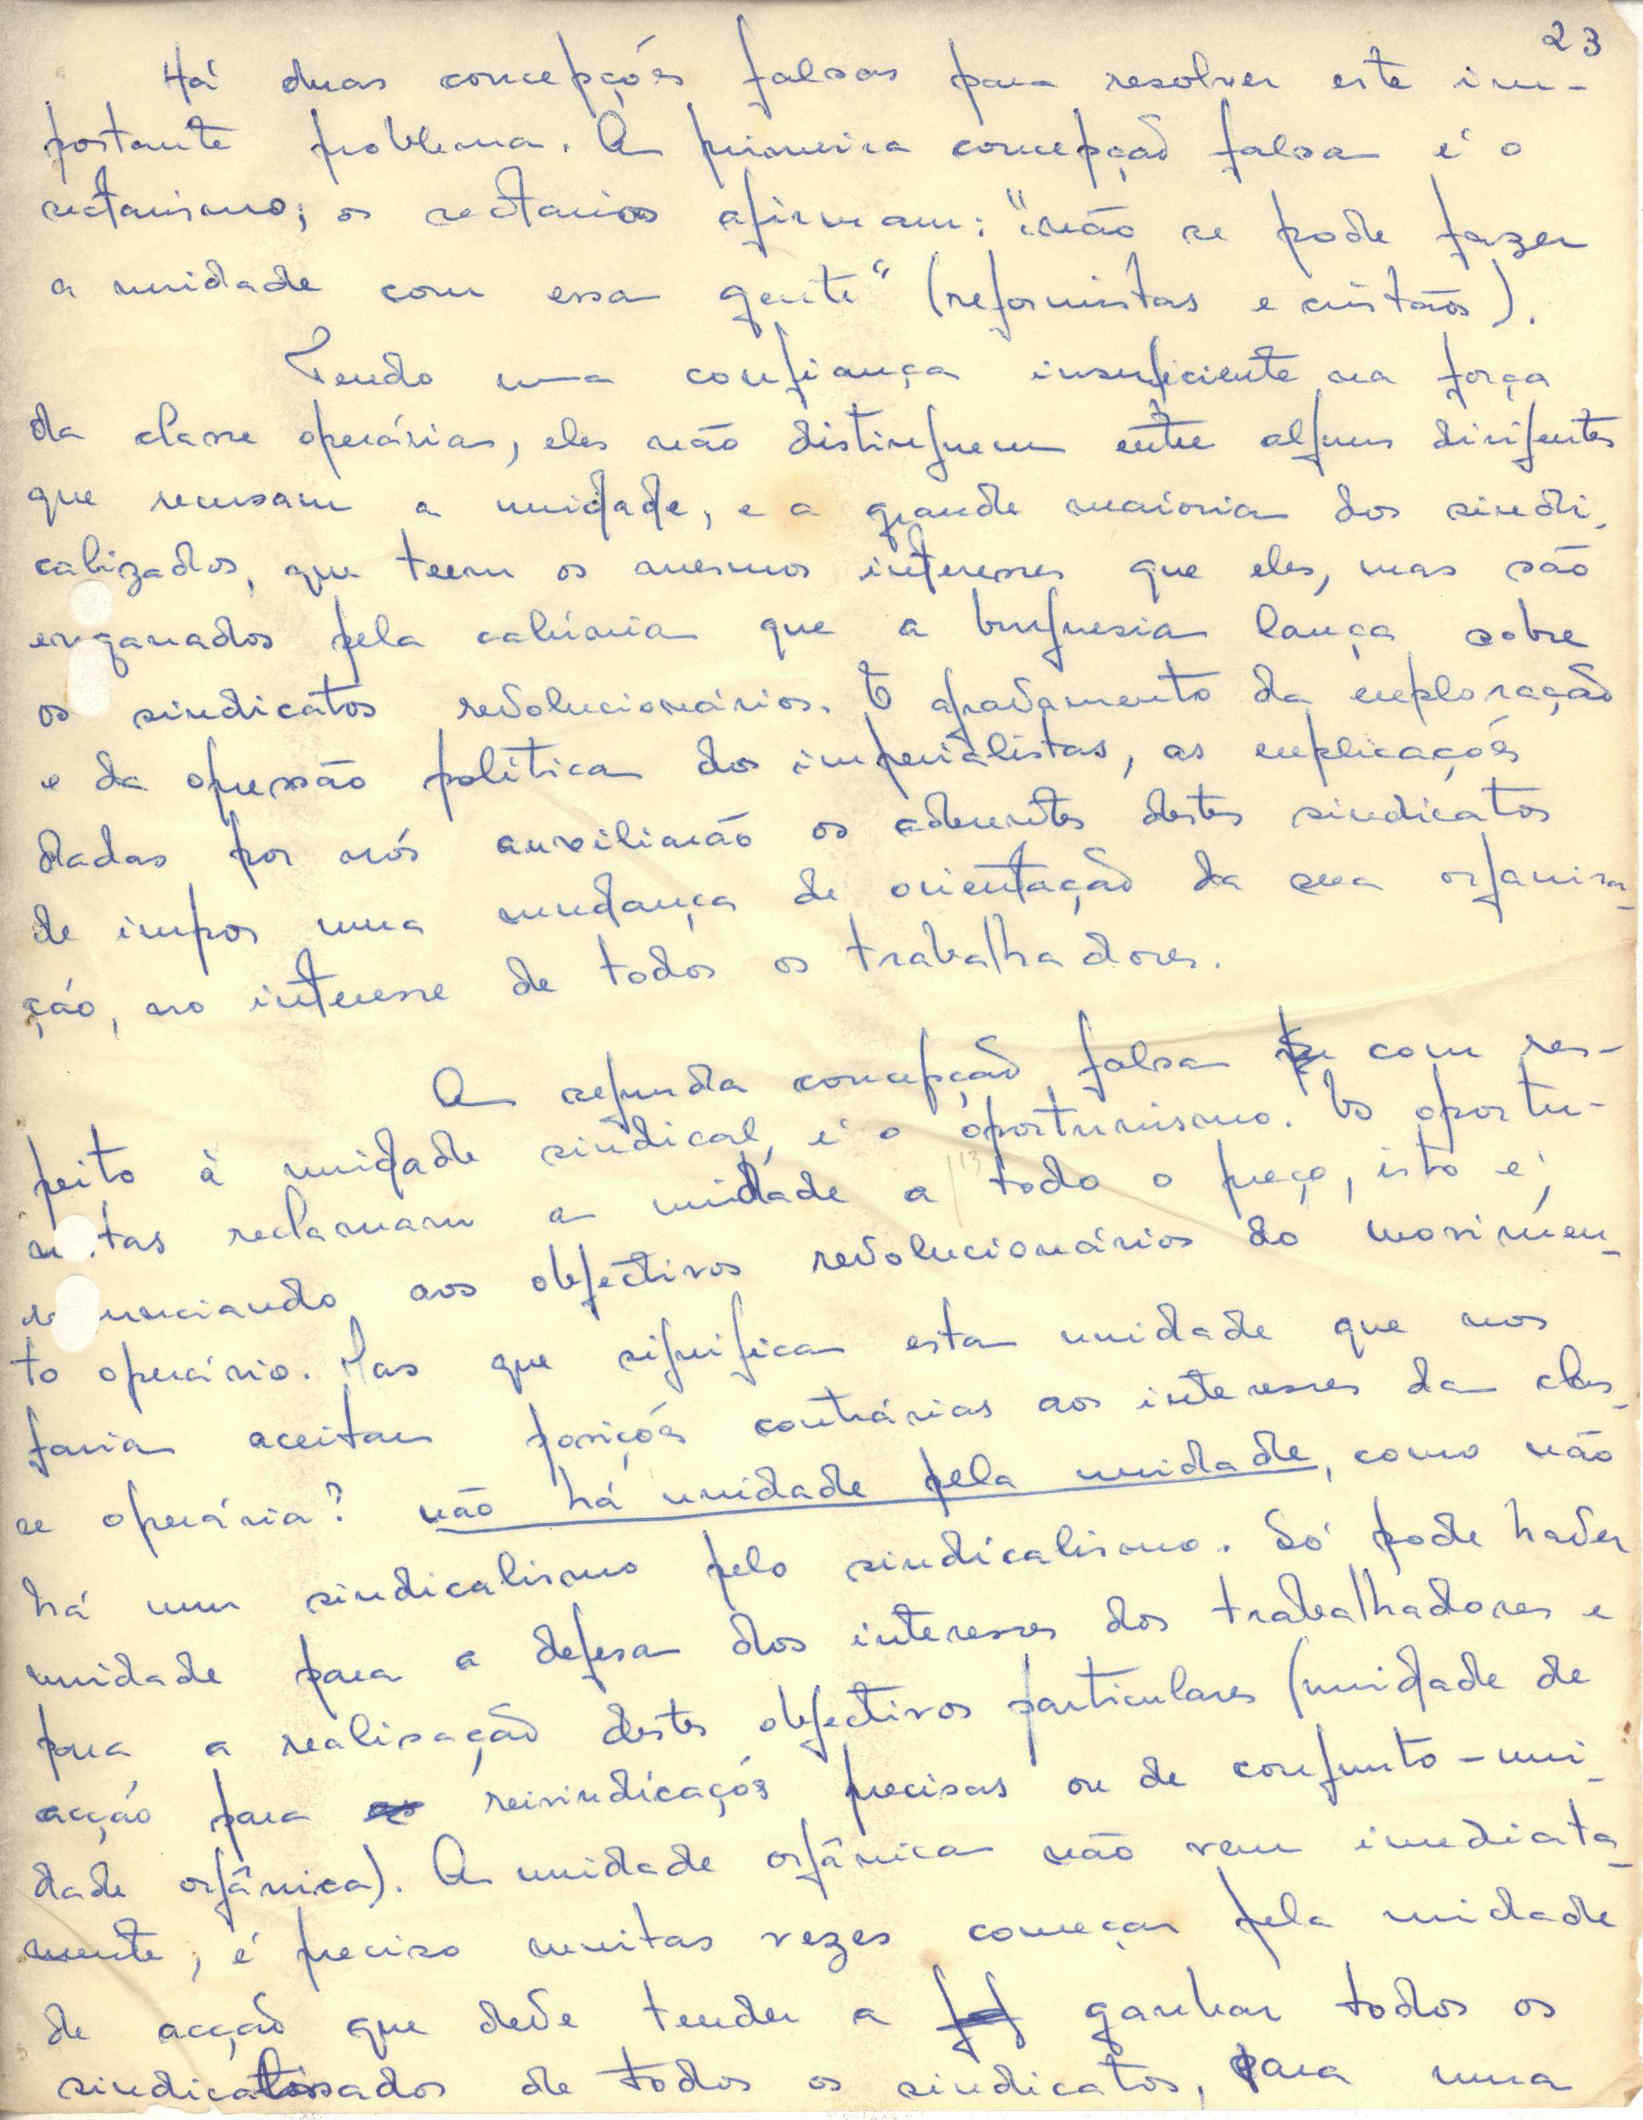 23
Há duas concepções falsas para resolver este im-
portante problema. A primeira concepção falsa é o
sectarismo; os sectarios afirmam: "não se pode fazer
a unidade com essa gente" (reformistas e cristãos).
Tendo uma confiança insuficiente na força
da classe operárias, eles não distinguem entre alguns dirigentes
que recusam a unidade, e a grande maioria dos sindi-
calizados, que teem os mesmos interesses que eles, mas são
enganados pela calúnia que a burguesia lança sobre
os sindicatos revolucionários. O agravamento da exploração
e da opressão política dos imperialistas, as explicações
dadas por nós auxiliarão os aderentes destes sindicatos
de impor uma mudança de orientação da sua organisa-
ção, no interesse de todos os trabalhadores.
A segunda concepção falsa com res-
peito à unidade sindical, é o oportunismo. Os oportu-
nistas reclamam a unidade a todo o preço, isto é,
renunciando aos objectivos revolucionários do movimen-
to operário. Mas que significa esta unidade que nos
faria aceitar posições contrárias aos interesses da clas-
se operária? não há unidade pela unidade, como não
há um sindicalismo pelo sindicalismo. Só pode haver
unidade para a defesa dos interesses dos trabalhadores e
para a realisação destes objectivos particulares (unidade de
acção para reivindicações precisas ou de conjunto - uni-
dade orgânica). A unidade orgânica não vem imediata-
mente, é preciso muitas vezes começar pela unidade
de acção que deve tender a ganhar todos os
sindicalisados de todos os sindicatos, para uma